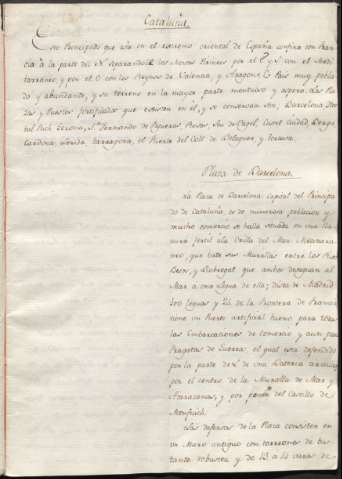 Cataluña.
Este Principado que está en el extremo oriental de España confina con Fran-
cia à la parte del N. separandole los Montes Pirineos por el E. y S. con el Medi-
terraneo, y por el O. con los Reynos de Valencia, y Aragon. Es Pais muy pobla-
do y abundante, y su terreno en la mayor parte montuoso y aspero. Las Pla-
zas y Puestos fortificados que existen en él, y se conservan son, Barcelona, Mon-
juich, Gerona, S.n Fernando de Figueras, Rosas, Seo de Urgel, Ciudad, Berga,
Cardona, Lerida, Tarragona, el Fuerte del Coll de Balaguer, y Tortosa.
Plaza de Barcelona.
La Plaza de Barcelona Capital del Principa-
do de Cataluña, es de numerosa poblacion y
mucho comercio, se halla situada en una lla-
nura fertil à la Orilla del Mar Mediterra-
neo, que bate sus Murallas entre los Rios
Besos, y Llobregat que ambos desaguan al
Mar à una Legua de ella; dista de Madrid
100 leguas y 24 de la Frontera de Francia
tiene un Puerto artificial bueno para todas
las Embarcaciones de Comercio y aun para
Fragatas de Guerra, el qual está defendido
por la parte de de una Bateria
por el centro de la Muralla de Mar y
Atarazanas, y por el Castillo de
Monjuich.
Las defensas de la Plaza consisten en
un Muro antiguo con torreones de bas-
tante robustez y de 12 à 14 varas de